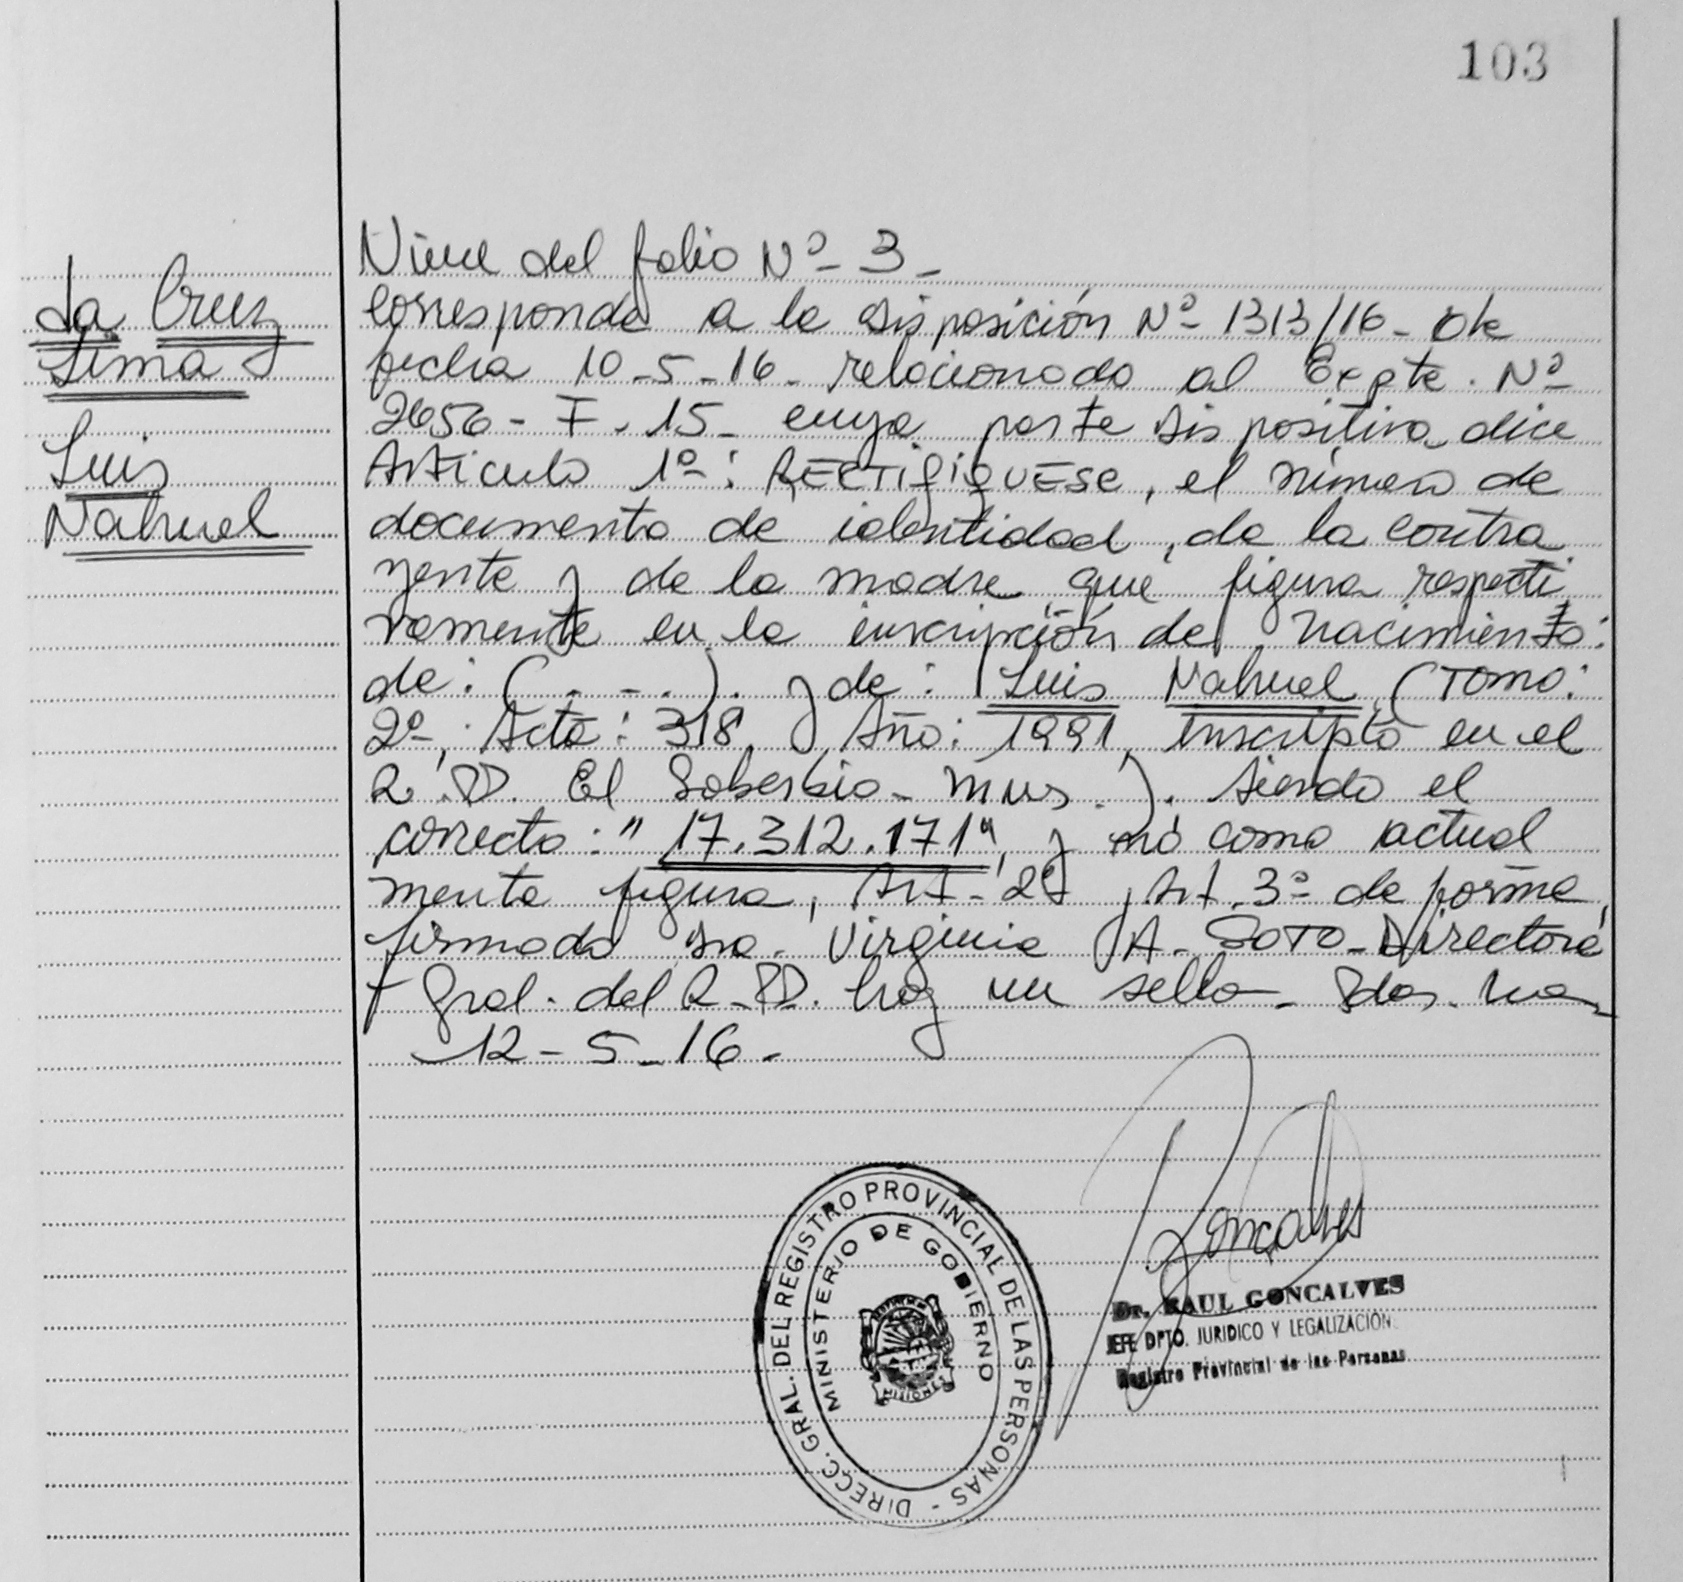 103
La Cruz
Lima
Luis
Nahuel
Viene del folio Nº 3-
Corresponde a la disposición Nº 1313/16- de
fecha 10-5-16- relacionado al Expte. Nº
2656- F-15- cuya parte dispositiva dice
Artículo 1º: RECTIFIQUESE, el número de
documento de identidad, de la contra
yente y de la madre que figura respecti
vamente en la inscripción de nacimiento:
de: (. - - .). y de: Luis Nahuel (Tomo:
2º, Acta: 318, Año: 1991, inscripto en el
R.PP. El Soberbio- Mns.). siendo el
correcto: "17.312.171", y no como actual
mente figura, Art- 2º, Art. 3º de forma,
firmado Sra. Virginia A- SOTO-Directora
Gral. del R-PP. hay un sello- Pdas. Mnes
12-5-16-
DIRECC. GRAL. DEL REGISTRO PROVINCIAL DE LAS PERSONAS -
MINISTERIO DE GOBIERNO
MISIONES
Goncalves
Dr. RAUL GONCALVES
JEFE DPTO. JURIDICO Y LEGALIZACION
Registro Provincial de las Personas